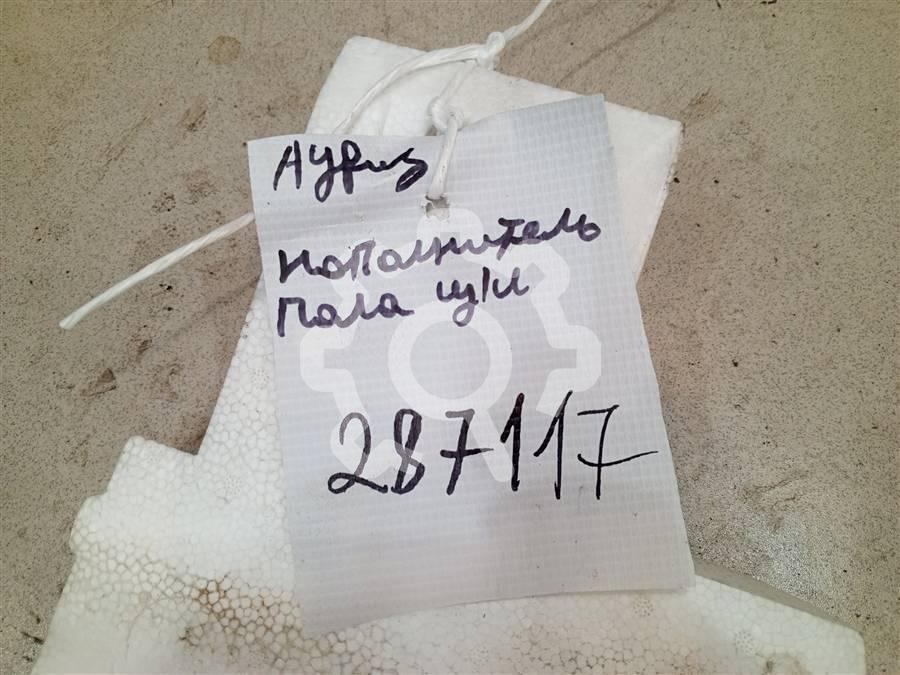 Аурис
Наполнитель
Пола щ/л
287117